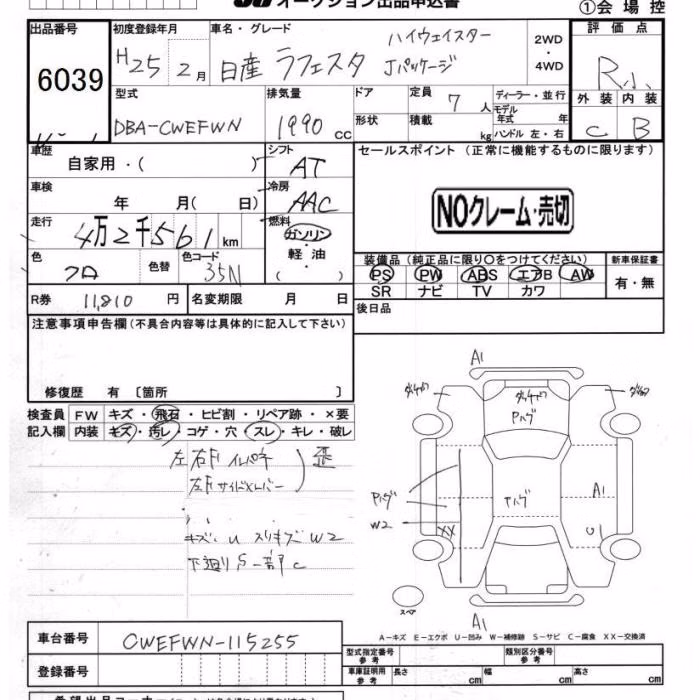 オークション出品申込書
①会場控
出品番号
6039
初度登録年月
H25 2月
車名・グレード
日産 ラフェスタ ハイウェイスター
Jパッケージ
2WD
・
4WD
評価点
外装 内装
C B
型式
DBA-CWEFWN
排気量
1990 cc
ドア
形状
定員 7 人
積載 kg
ディーラー・並行
モデル年式 年
ハンドル 左・右
車歴
自家用・( )
シフト
AT
セールスポイント (正常に機能するものに限ります)
NOクレーム・売切
車検
年 月( 日)
冷房
AAC
走行
4万2千561km
燃料
ガソリン
・
軽油
( )
色
クロ
色替
色コード
35N
装備品 (純正品に限り○をつけてください)
PS PW ABS エアB AW
SR ナビ TV カワ
新車保証書
有・無
R券 11,810 円
名変期限 月 日
後日品
注意事項申告欄 (不具合内容等は具体的に記入して下さい)
修復歴 有 〔箇所 〕
検査員 FW キズ・飛石・ヒビ割・リペア跡・×要
記入欄 内装 キズ・汚レ・コゲ・穴・スレ・キレ・破レ
左右F インパネ
左F サイドメンバー
歪
キズ・U スリキズ W2
下廻りS 一部C
A1
Pハゲ
Pハゲ
W2
XX
A1
U1
スペア
A1
A-キズ E-エクボ U-凹み W-補修跡 S-サビ C-腐食 XX-交換済
車台番号 CWEFWN-115255
登録番号
型式指定番号
参考
類別区分番号
参考
車庫証明用
参考
長さ cm
幅 cm
高さ cm